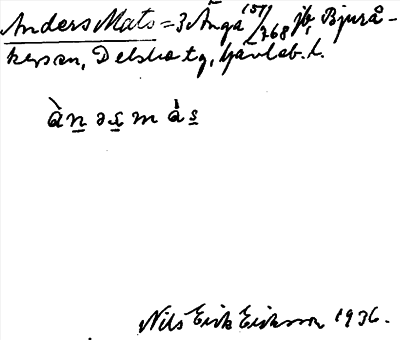 Anders Mats = 3 Änga 15/1768 jb, Bjurå-
kers sn, Delsbo tg, Gävleb. l.
àn̲əs̲ m às̲
Nils Erik Eriksson 1936.